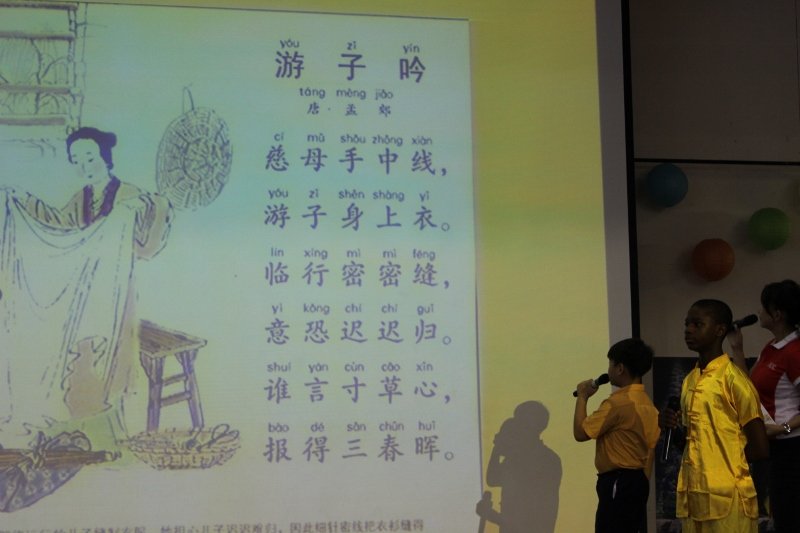 yóu zǐ yín
游 子 吟
táng mèng jiāo
唐·孟 郊
cí mǔ shǒu zhōng xiàn
慈母手中线，
yóu zǐ shēn shàng yī
游子身上衣。
lín xíng mì mì féng
临行密密缝，
yì kǒng chí chí guī
意恐迟迟归。
shuí yán cùn cǎo xīn
谁言寸草心，
bào dé sān chūn huī
报得三春晖。
儿子迟迟难归，因此细针密线把衣衫缝得